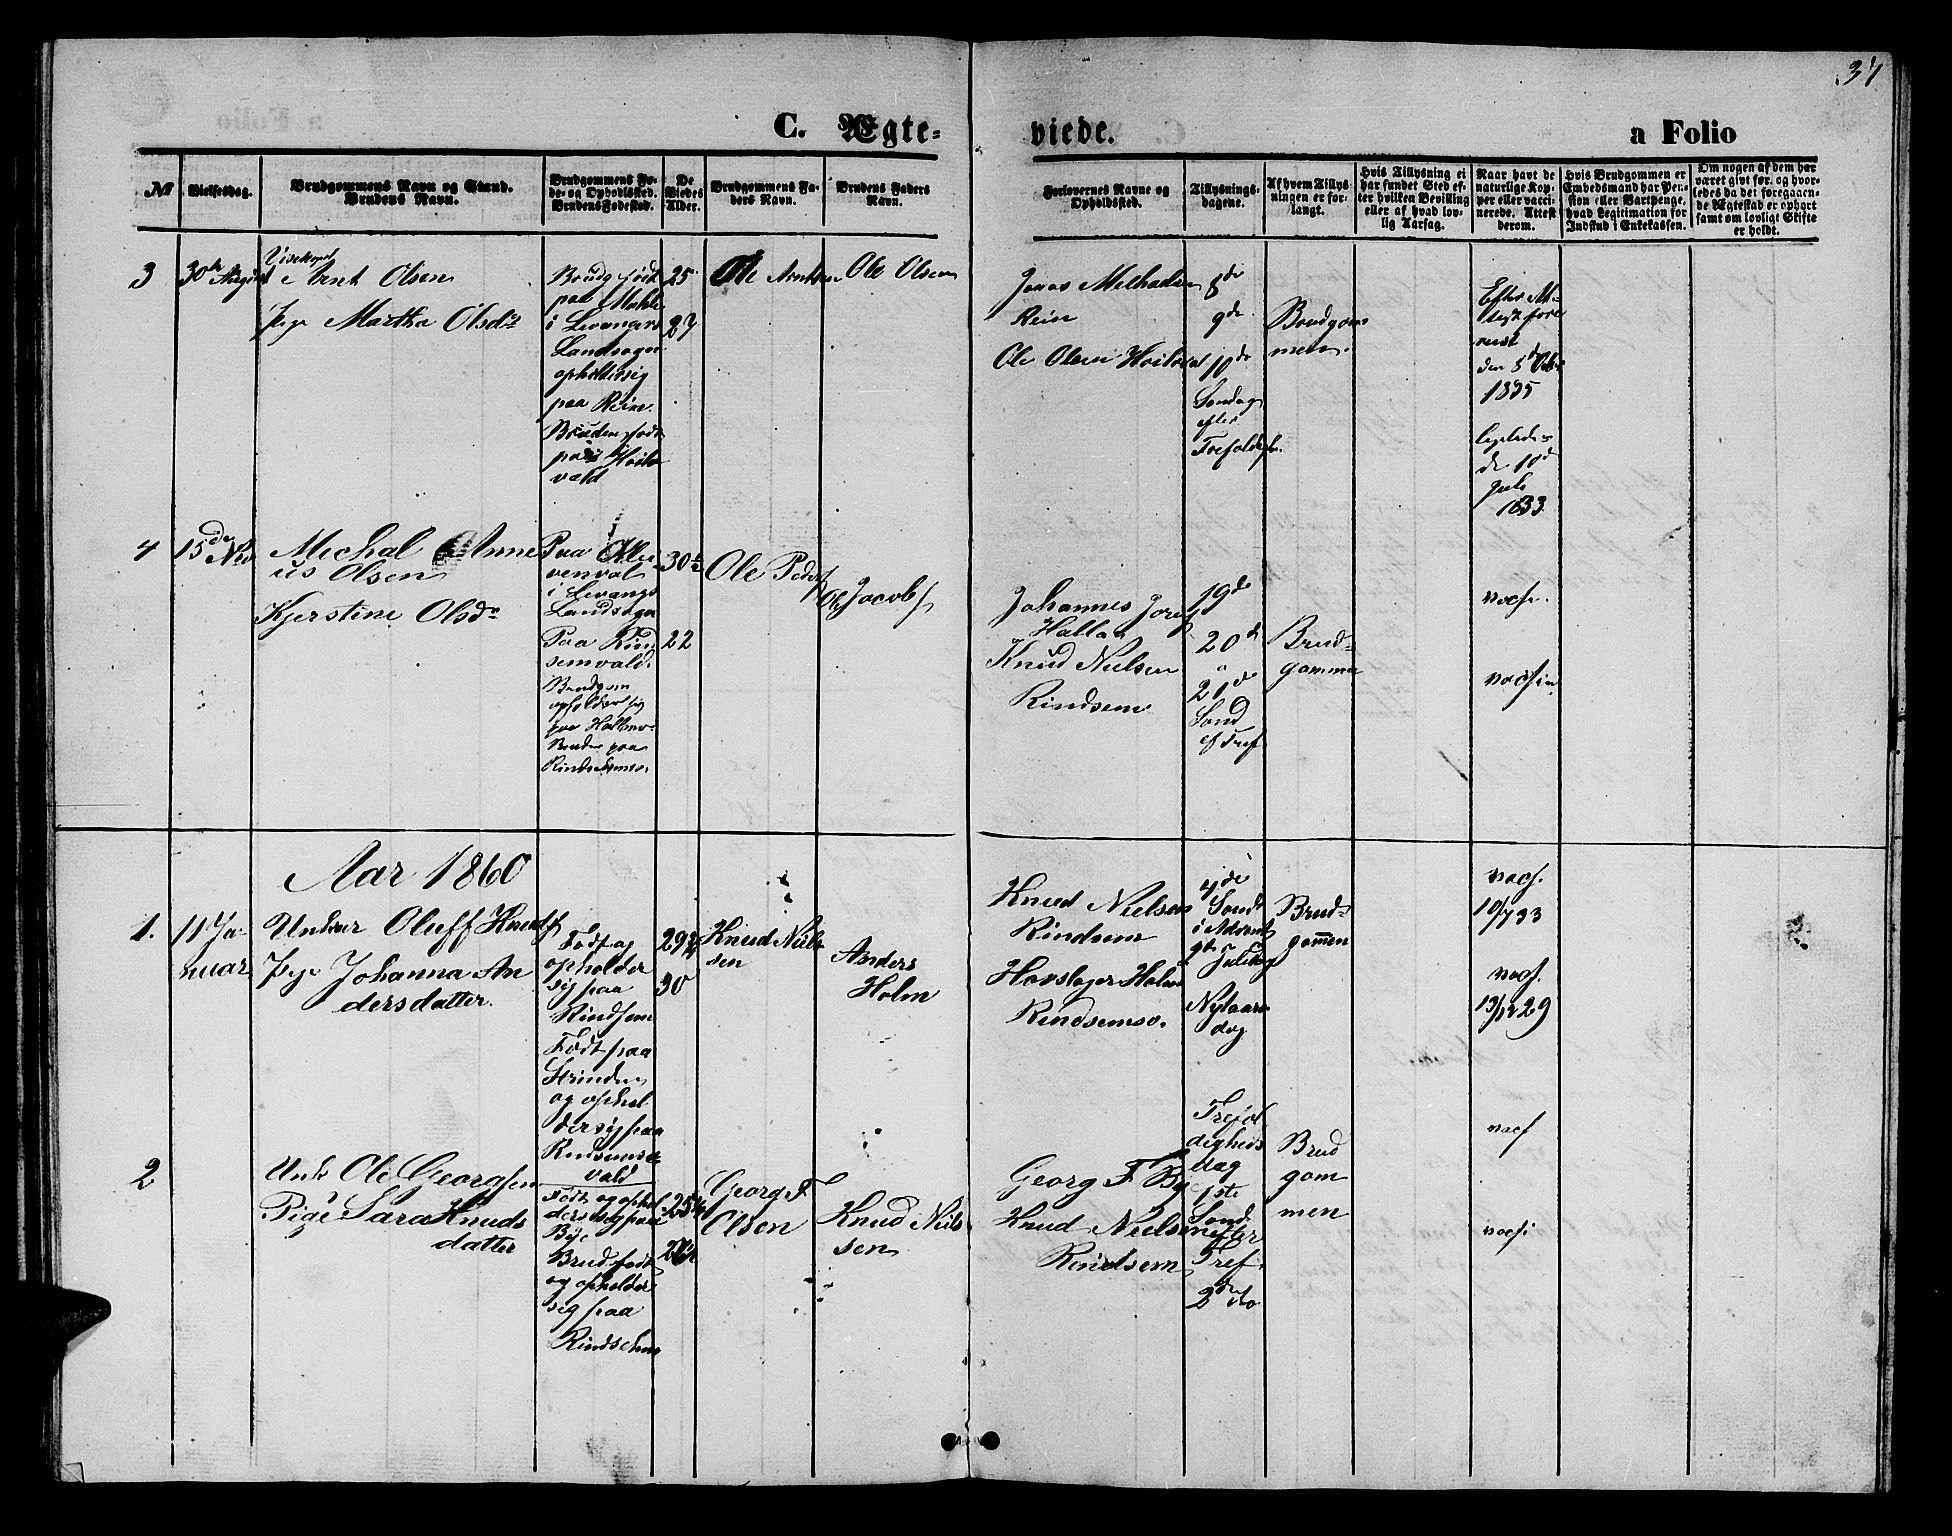 37
C. Ægte-
viede.
a Folio
№
Vielsesdag.
Brudgommens Navn og Stand.
Brudens Navn.
Brudgommens Fø-
de- og Opholdssted.
Brudens Fødested.
De
Viedes
Alder.
Brudgommens Fa-
ders Navn.
Brudens Faders
Navn.
Forlovernes Navne og
Opholdssted.
Tillysnings-
dagene.
Af hvem Tillys-
ningen er for-
langt.
Hvis Tillysning ei
har fundet Sted ef-
ter hvilken Bevilling
eller af hvad lov-
lig Aarsag.
Naar havt de
naturlige Kop-
per eller vacci-
nerede. Attest
derom.
Hvis Brudgommen er
Embedsmand har Pen-
sion eller Vartpenge,
hvad Legitimation for
Indskud i Enkekassen.
Om nogen af dem har
været givt før, og hvor-
ledes da det foregaaen-
de Ægteskab er ophørt
samt om lovligt Skifte
er holdt.
3
30te August
Arnt Olsen
Pige Martha Olsdtr
Brudg. født
paa
i Levangers
Landsogn
opholder sig
paa Rein.
Bruden født
paa
vald
25
27
Ole Arntsen
Ole Olsen
Jonas
Rein
Ole Olsen
8de
9de
10de
Søndag
efter
Trefoldigh.
Brudgom
men.
Efter
1835
den 10de
Juli
1833
4
15de Nov
Michal Anne
us Olsen
Kjerstine Olsdr
Paa
venval
i Levangs
Landsogn
Paa Rind
semvald.
Brudgom
opholder sig
paa
Bruden paa
30
22
Ole Peders
Ole Jacobs
Johannes
Hallan
Knud Nielsen
Rindsem
19de
20de
21de
Sønd
ef Tref
Brud-
gommen
vacsi.
vacsin.
Aar 1860
1.
11 Ja-
nuar
Unkar Oluff Knuds
Pige Johanna An
dersdatter.
Født og
opholder
sig paa
Rindsem
Født paa
Strinden
og ophol
der sig paa
Rindsems
vald
29 3/4
30
Knud Niel
sen
Anders
Holm
Knud Nielsen
Rindsem
Holm
4de
Sønd
i Advent
Juledag
Nytaars
dag
Brud-
gommen
vacs.
vacs.
2
Unk Ole Georgsen
Pige Sara Knuds
datter
Født og ophol
der sig paa
Bye
Brud født
og opholder
sig paa
Rindsehm
25
Georg F
Olsen
Knud Niel
sen
Georg F By
Knud Nielsen
Rindsem
Trefol
digheds
dag
1ste
Sønd
efter
Tref.
2den do
Brud
gom
men
vacs
vacsi